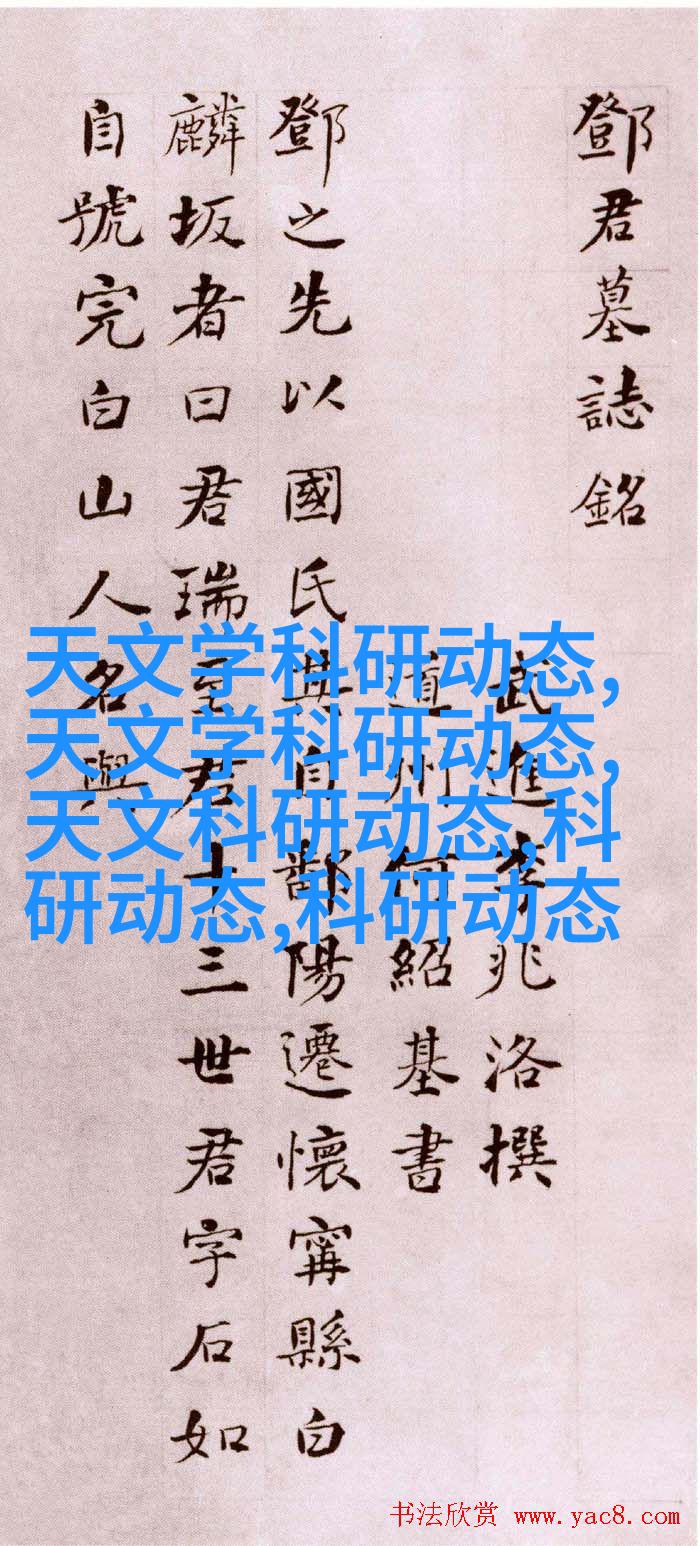 鄧君墓誌銘
武進李兆洛撰
道州何紹基書
鄧之先以國氏其自鄱陽遷懷寧縣白
麟坂者曰君瑞至君十三世君字石如
自號完白山人名與
天文学科研动态,
天文学科研动态,
天文科研动态,科
研动态,科研动态
书法欣赏 www.yac8.com